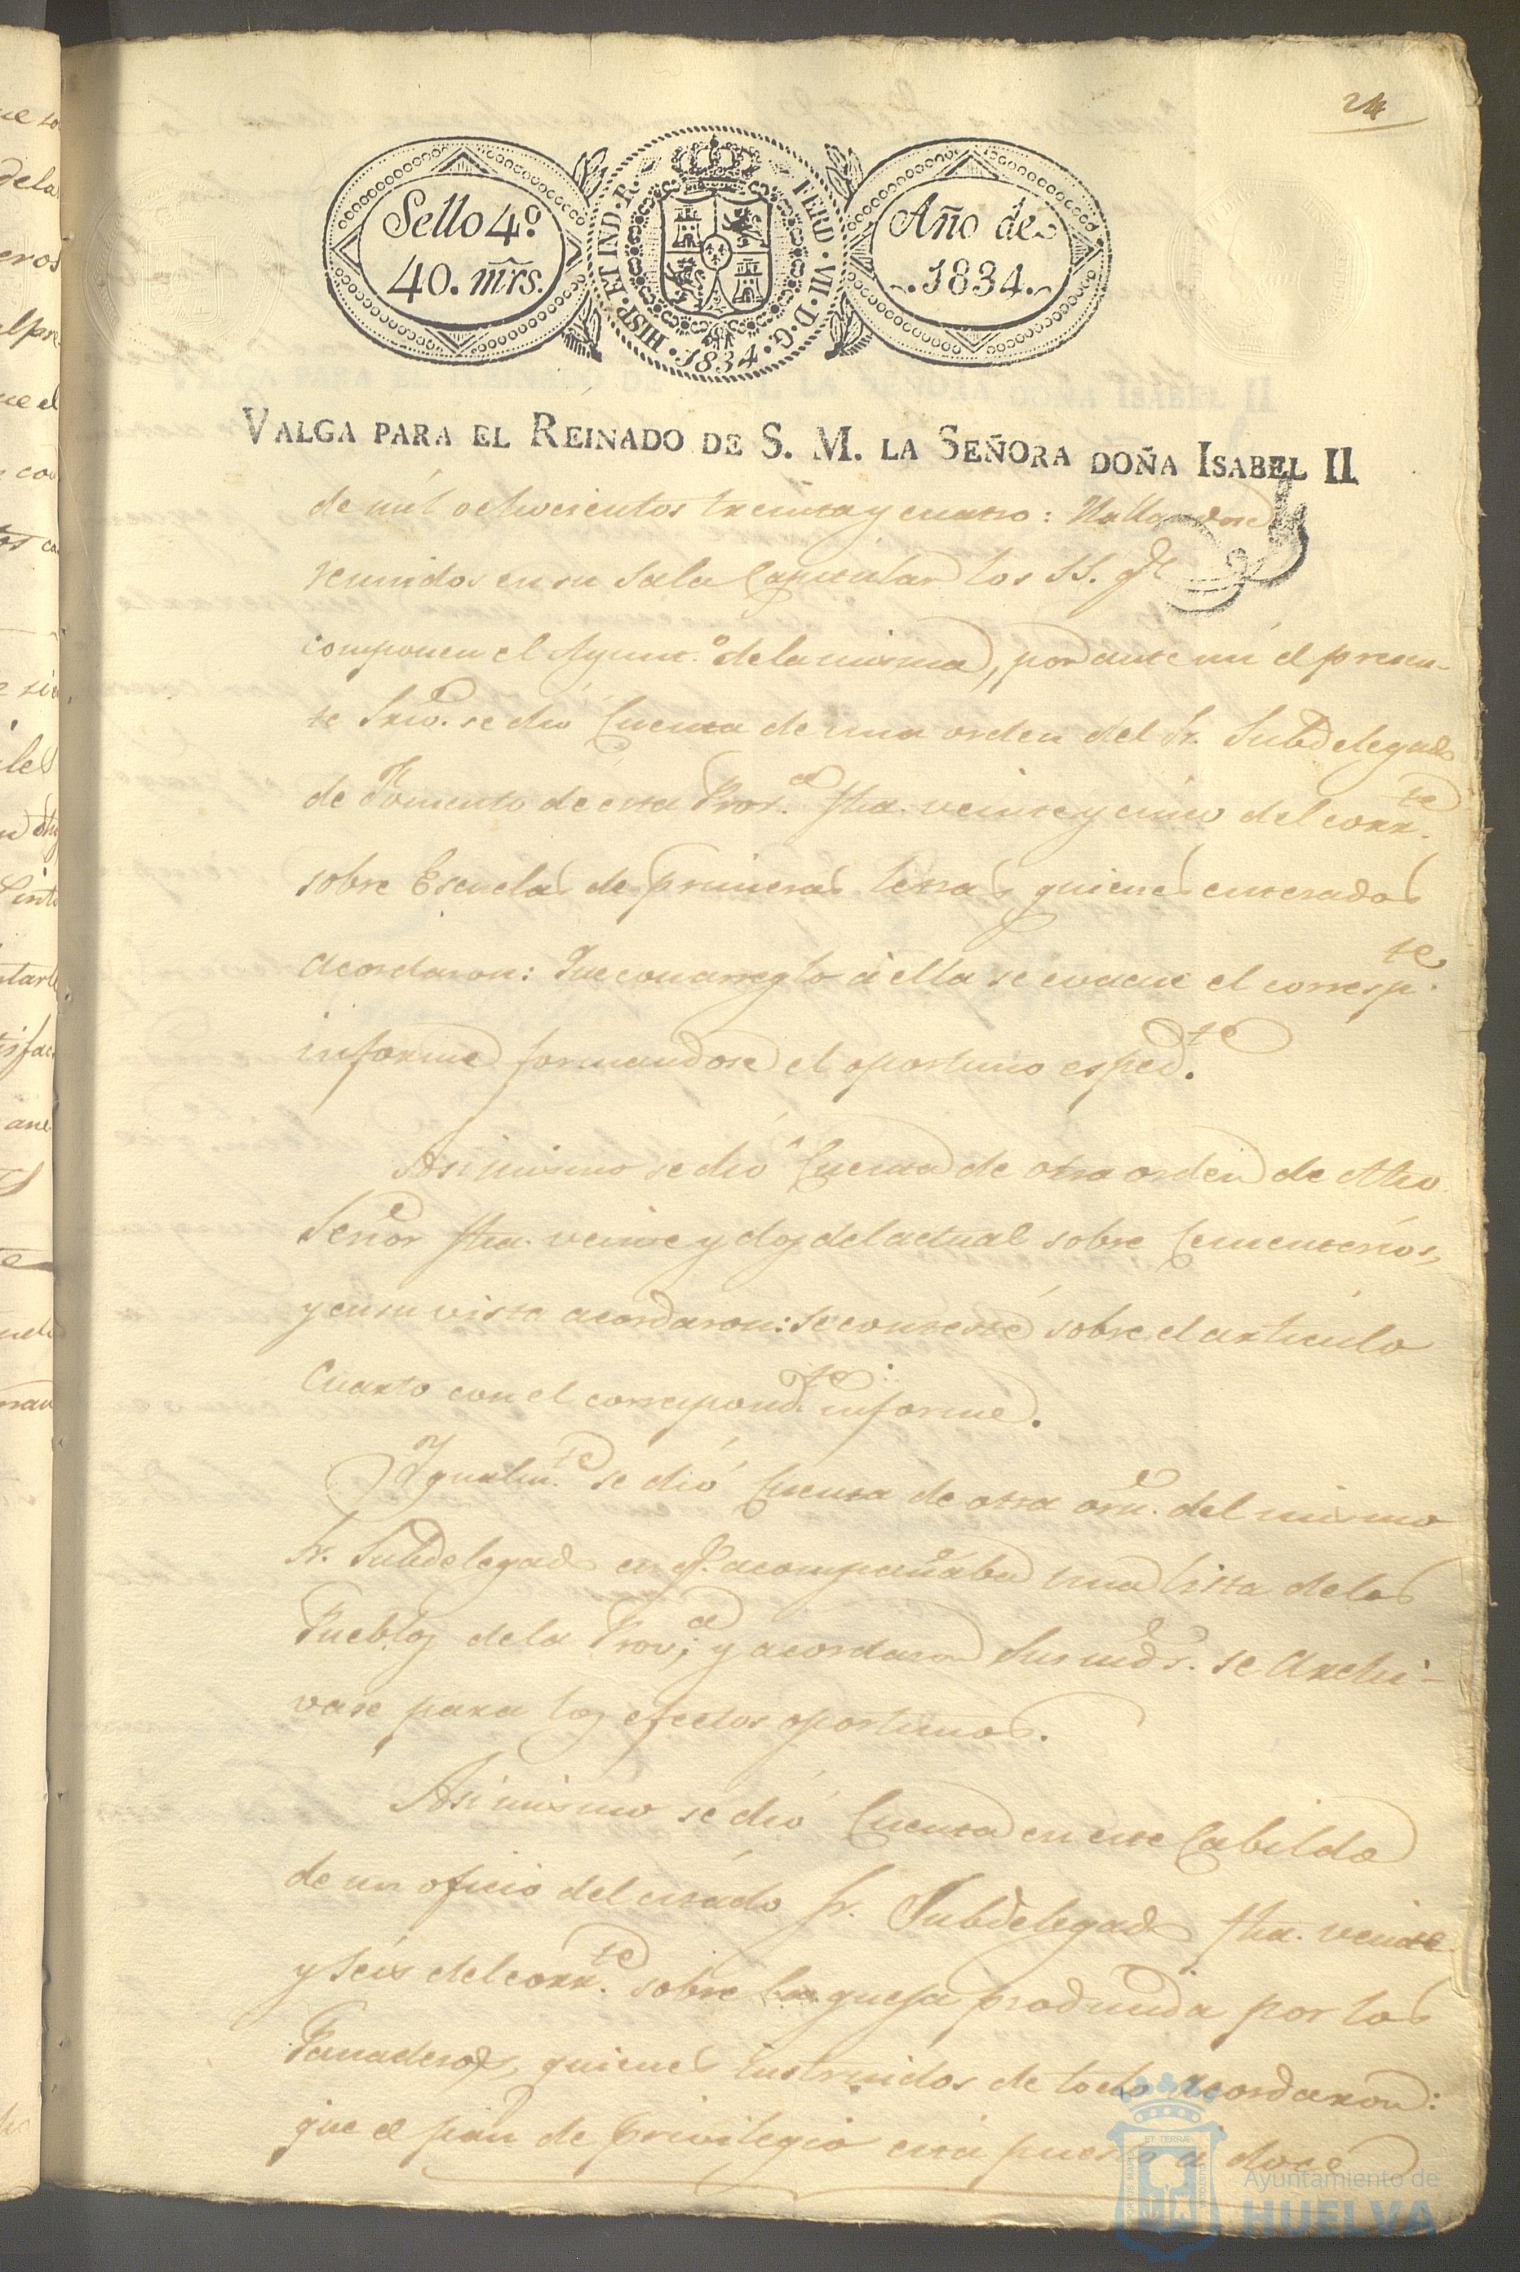 24
Sello 4º
40. mrs.
HISP. ET IND. R. FERD. VII. D. G.
.1834.
Año de
.1834.
VALGA PARA EL REINADO DE S. M. LA SEÑORA DOÑA ISABEL II
de mil ochocientos treinta y cuatro: Hallandose
reunidos en su Sala Capitular los SS. qe
componen el Ayunt.º de la misma, por ante mi el presen-
te Srio. se dió Cuenta de una orden del Sr. Subdelegado
de Fomento de esta Prov.a fha. veinte y cinco del corr.te
sobre Escuelas de primeras letras, quienes enterados
acordaron: Que con arreglo á ella se evacue el corresp.te
informe formandose el oportuno esped.te
Asimismo se dió Cuenta de otra orden de dho
Señor fha. veinte y dos del actual sobre Cementerios,
y en su vista acordaron: se conteste sobre el articulo
Cuarto con el correspond.te informe.
Ygualm.te se dió Cuenta de otra orn. del mismo
Sr. Subdelegado en q.e acompañaba una lista de los
Pueblos de la Prov.a; y acordaron Sus mds. se Archi-
vase para los efectos oportunos.
Asimismo se dió Cuenta en este Cabildo
de un oficio del citado Sr. Subdelegado fha. veinte
y seis del corr.te sobre la queja producida por los
Panaderos, quienes instruidos de todo acordaron:
que el pan de Privilegio está puesto á doce
Ayuntamiento de
HUELVA